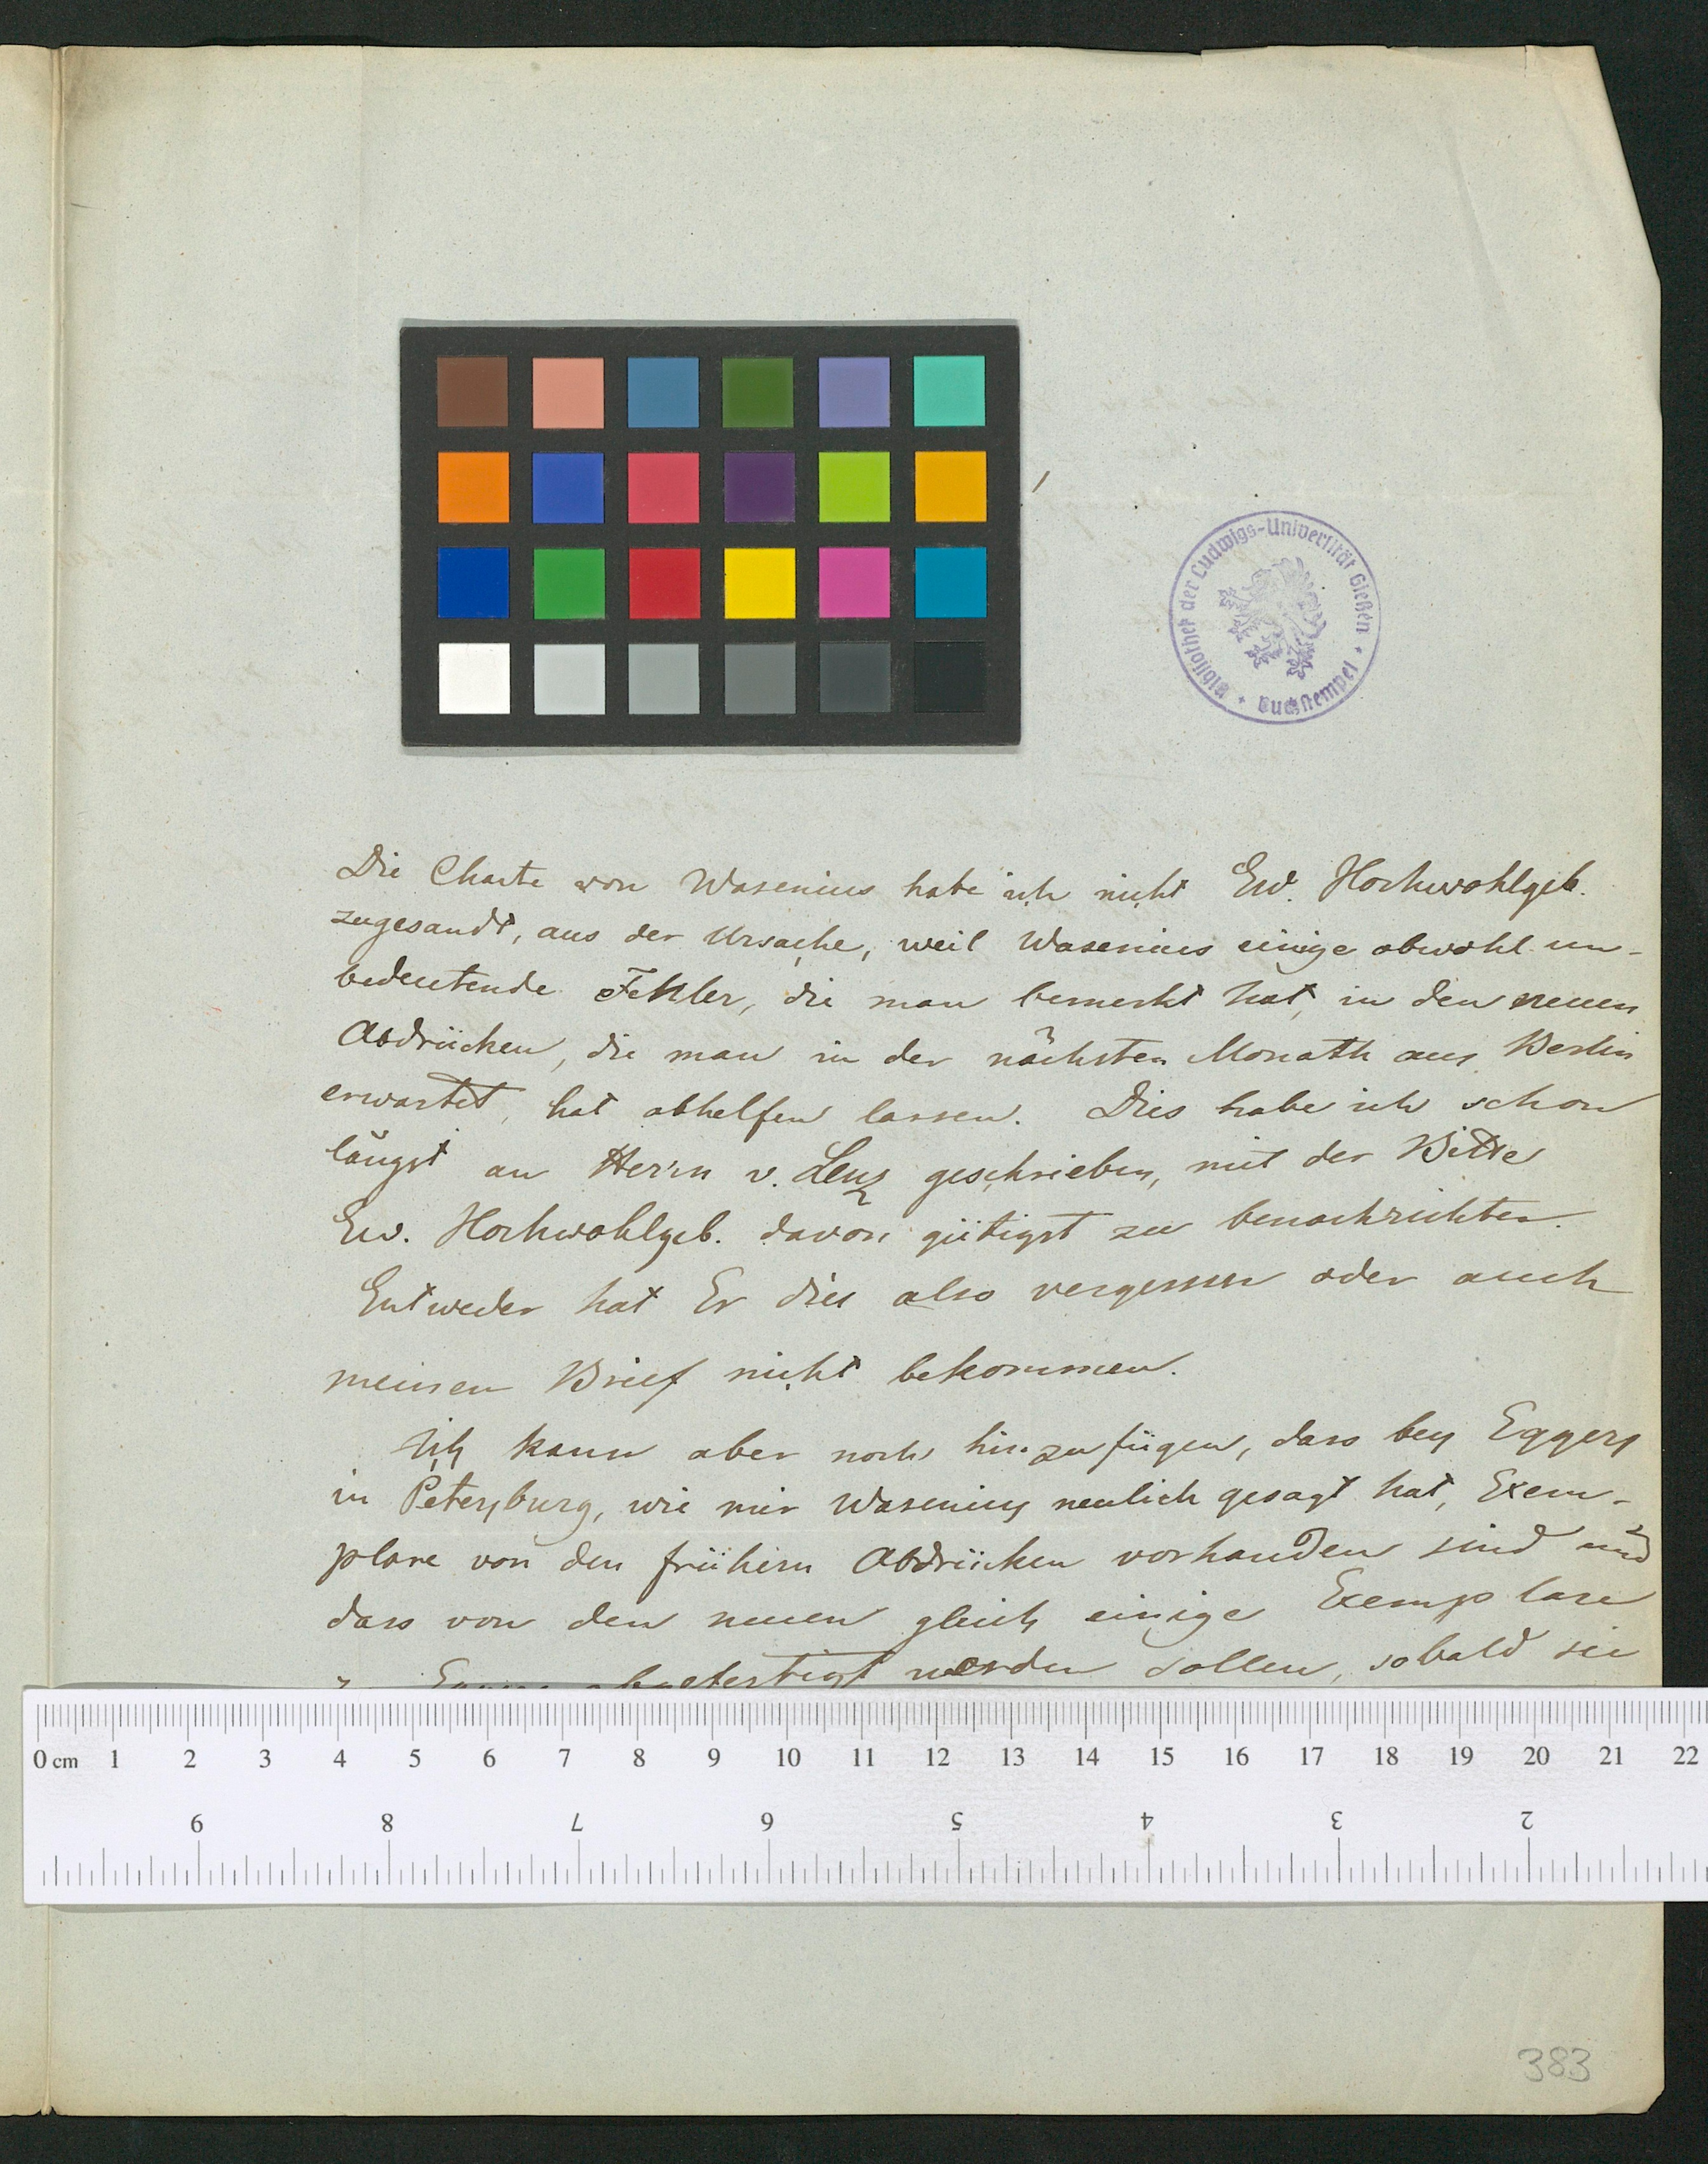 Bibliothek der Ludwigs-Universität Gießen
Buchstempel
Die Charte von Wasenius habe ich nicht Ew. Hochwohlgeb.
zugesandt, aus der Ursache, weil Wasenius einige obwohl un-
bedeutende Fehler, die man bemerkt hat, in den neuen
Abdrücken, die man in der nächsten Monath aus Berlin
erwartet, hat abhelfen lassen. Dies habe ich schon
längst an Herrn v. Lenz geschrieben, mit der Bitte
Ew. Hochwohlgeb. davon gütigst zu benachrichten.
Entweder hat Er dies also vergessen oder auch
meinen Brief nicht bekommen.
Ich kann aber noch hinzufügen, dass bey Eggers
in Petersburg, wie mir Wasenius neulich gesagt hat, Exem-
plare von den frühern Abdrücken vorhanden sind und
dass von den neuen gleich einige Exemplare
abgefertigt werden sollen, sobald sie
0 cm 1 2 3 4 5 6 7 8 9 10 11 12 13 14 15 16 17 18 19 20 21 22
9 8 7 6 5 4 3 2
383